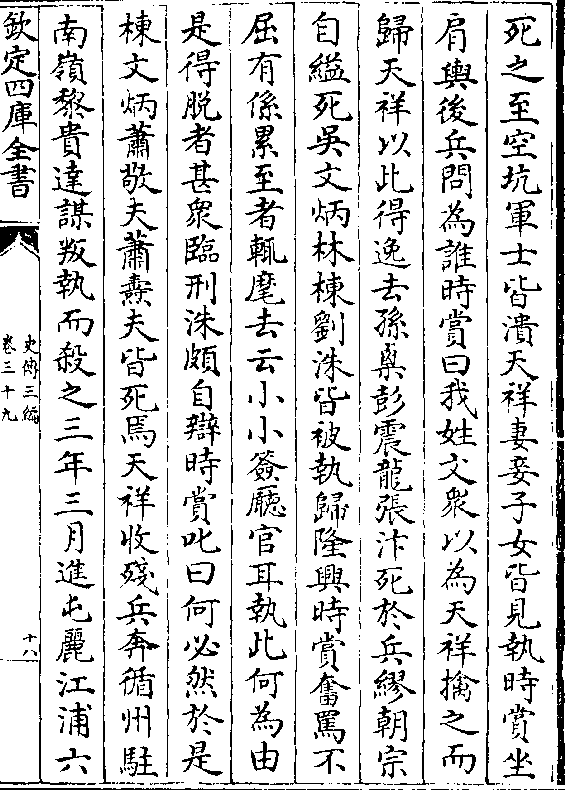 死之至空坑軍士皆潰天祥妻妾子女皆見執時賞坐
肩輿後兵問為誰時賞曰我姓文衆以為天祥擒之而
歸天祥以此得逸去孫㮚彭震龍張汴死於兵繆朝宗
自縊死吳文炳林棟劉洙皆被執歸隆興時賞奮罵不
屈有係累至者輒麾去云小小簽廳官耳執此何為由
是得脫者甚衆臨刑洙頗自辯時賞叱曰何必然於是
棟文炳蕭敬夫蕭燾夫皆死焉天祥收殘兵奔循州駐
南嶺黎貴達謀叛執而殺之三年三月進屯麗江浦六
欽定四庫全書
史傳三編
卷三十九
十八